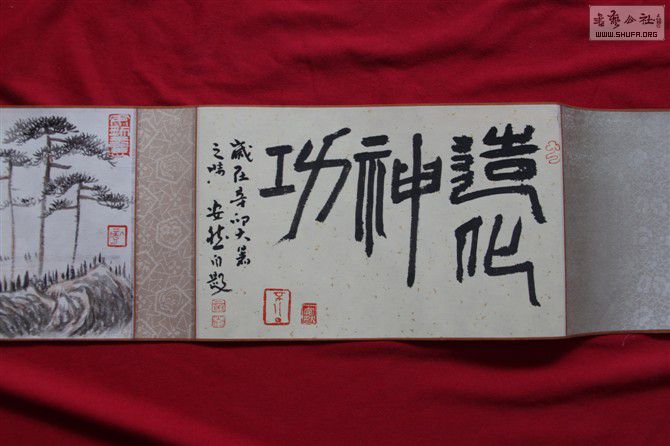 造化
神
功
歲在辛卯大暑
之時 安 自題
書藝公社
WWW.SHUFA.ORG